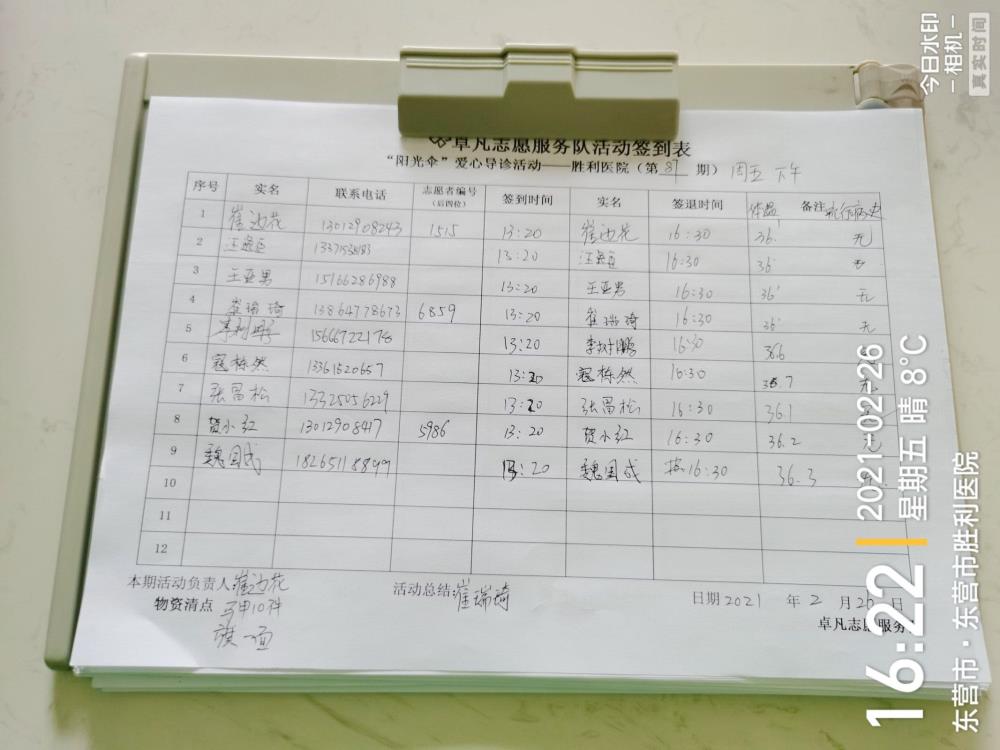 卓凡志愿服务队活动签到表
“阳光伞”爱心导诊活动——胜利医院（第 81 期） 周五 下午
序号 实名 联系电话 志愿者编号（后四位） 签到时间 实名 签退时间 体温 备注 流行病史
1 崔边花 13012908243 1515 13:20 崔边花 16:30 36.1 无
2 13:20 16:30 36 无
3 王亚男 15166286988 13:20 王亚男 16:30 36.1 无
4 崔瑞琦 13864778673 6859 13:20 崔瑞琦 16:30 36 无
5 15666722178 13:20 李树鹏 16:30 36.6
6 寇栋然 13361520657 13:20 寇栋然 16:30 36.7 无
7 张富松 13325056229 13:20 张富松 16:30 36.1
8 贺小红 13012908417 5986 13:20 贺小红 16:30 36.2 无
9 魏国成 18265118899 13:20 魏国成 16:30 36.3
10
11
12
本期活动负责人:崔边花 活动总结:崔瑞琦 日期 2021 年 2 月 日
物资清点 马甲10件
旗一面
卓凡志愿服务
今日水印
-相机-
真实时间
16:22
2021-02-26
星期五 晴 8°C
东营市·东营市胜利医院